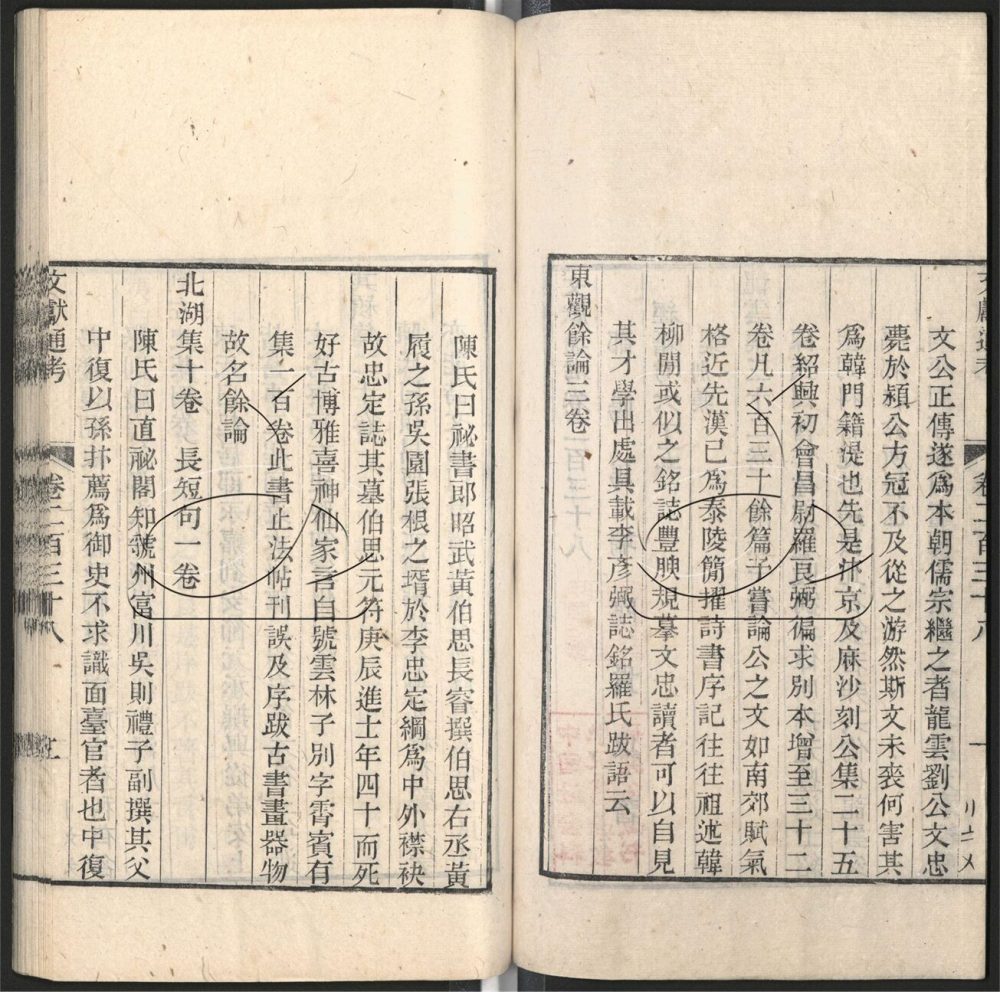 文獻通考 卷二百三十八
文公正傳遂爲本朝儒宗繼之者龍雲劉公文忠
薨於潁公方冠不及從之游然斯文未喪何害其
爲韓門籍湜也先是汴京及麻沙刻公集二十五
卷紹興初會昌尉羅良弼徧求別本增至三十二
卷凡六百三十餘篇子嘗論公之文如南郊賦氣
格近先漢已爲泰陵簡擢詩書序記往往祖述韓
柳閒或似之銘誌豐腴規摹文忠讀者可以自見
其才學出處具載李彥弼誌銘羅氏跋語云
東觀餘論三卷
陳氏曰祕書郎昭武黃伯思長睿撰伯思右丞黃
履之孫吳園張根之壻於李忠定綱爲中外襟袂
故忠定誌其墓伯思元符庚辰進士年四十而死
好古博雅喜神仙家言自號雲林子別字霄賓有
集一百卷此書止法帖刊誤及序跋古書畫器物
故名餘論
北湖集十卷 長短句一卷
陳氏曰直祕閣知虢州富川吳則禮子副撰其父
中復以孫抃薦爲御史不求識面臺官者也中復
文獻通考 卷二百三十八